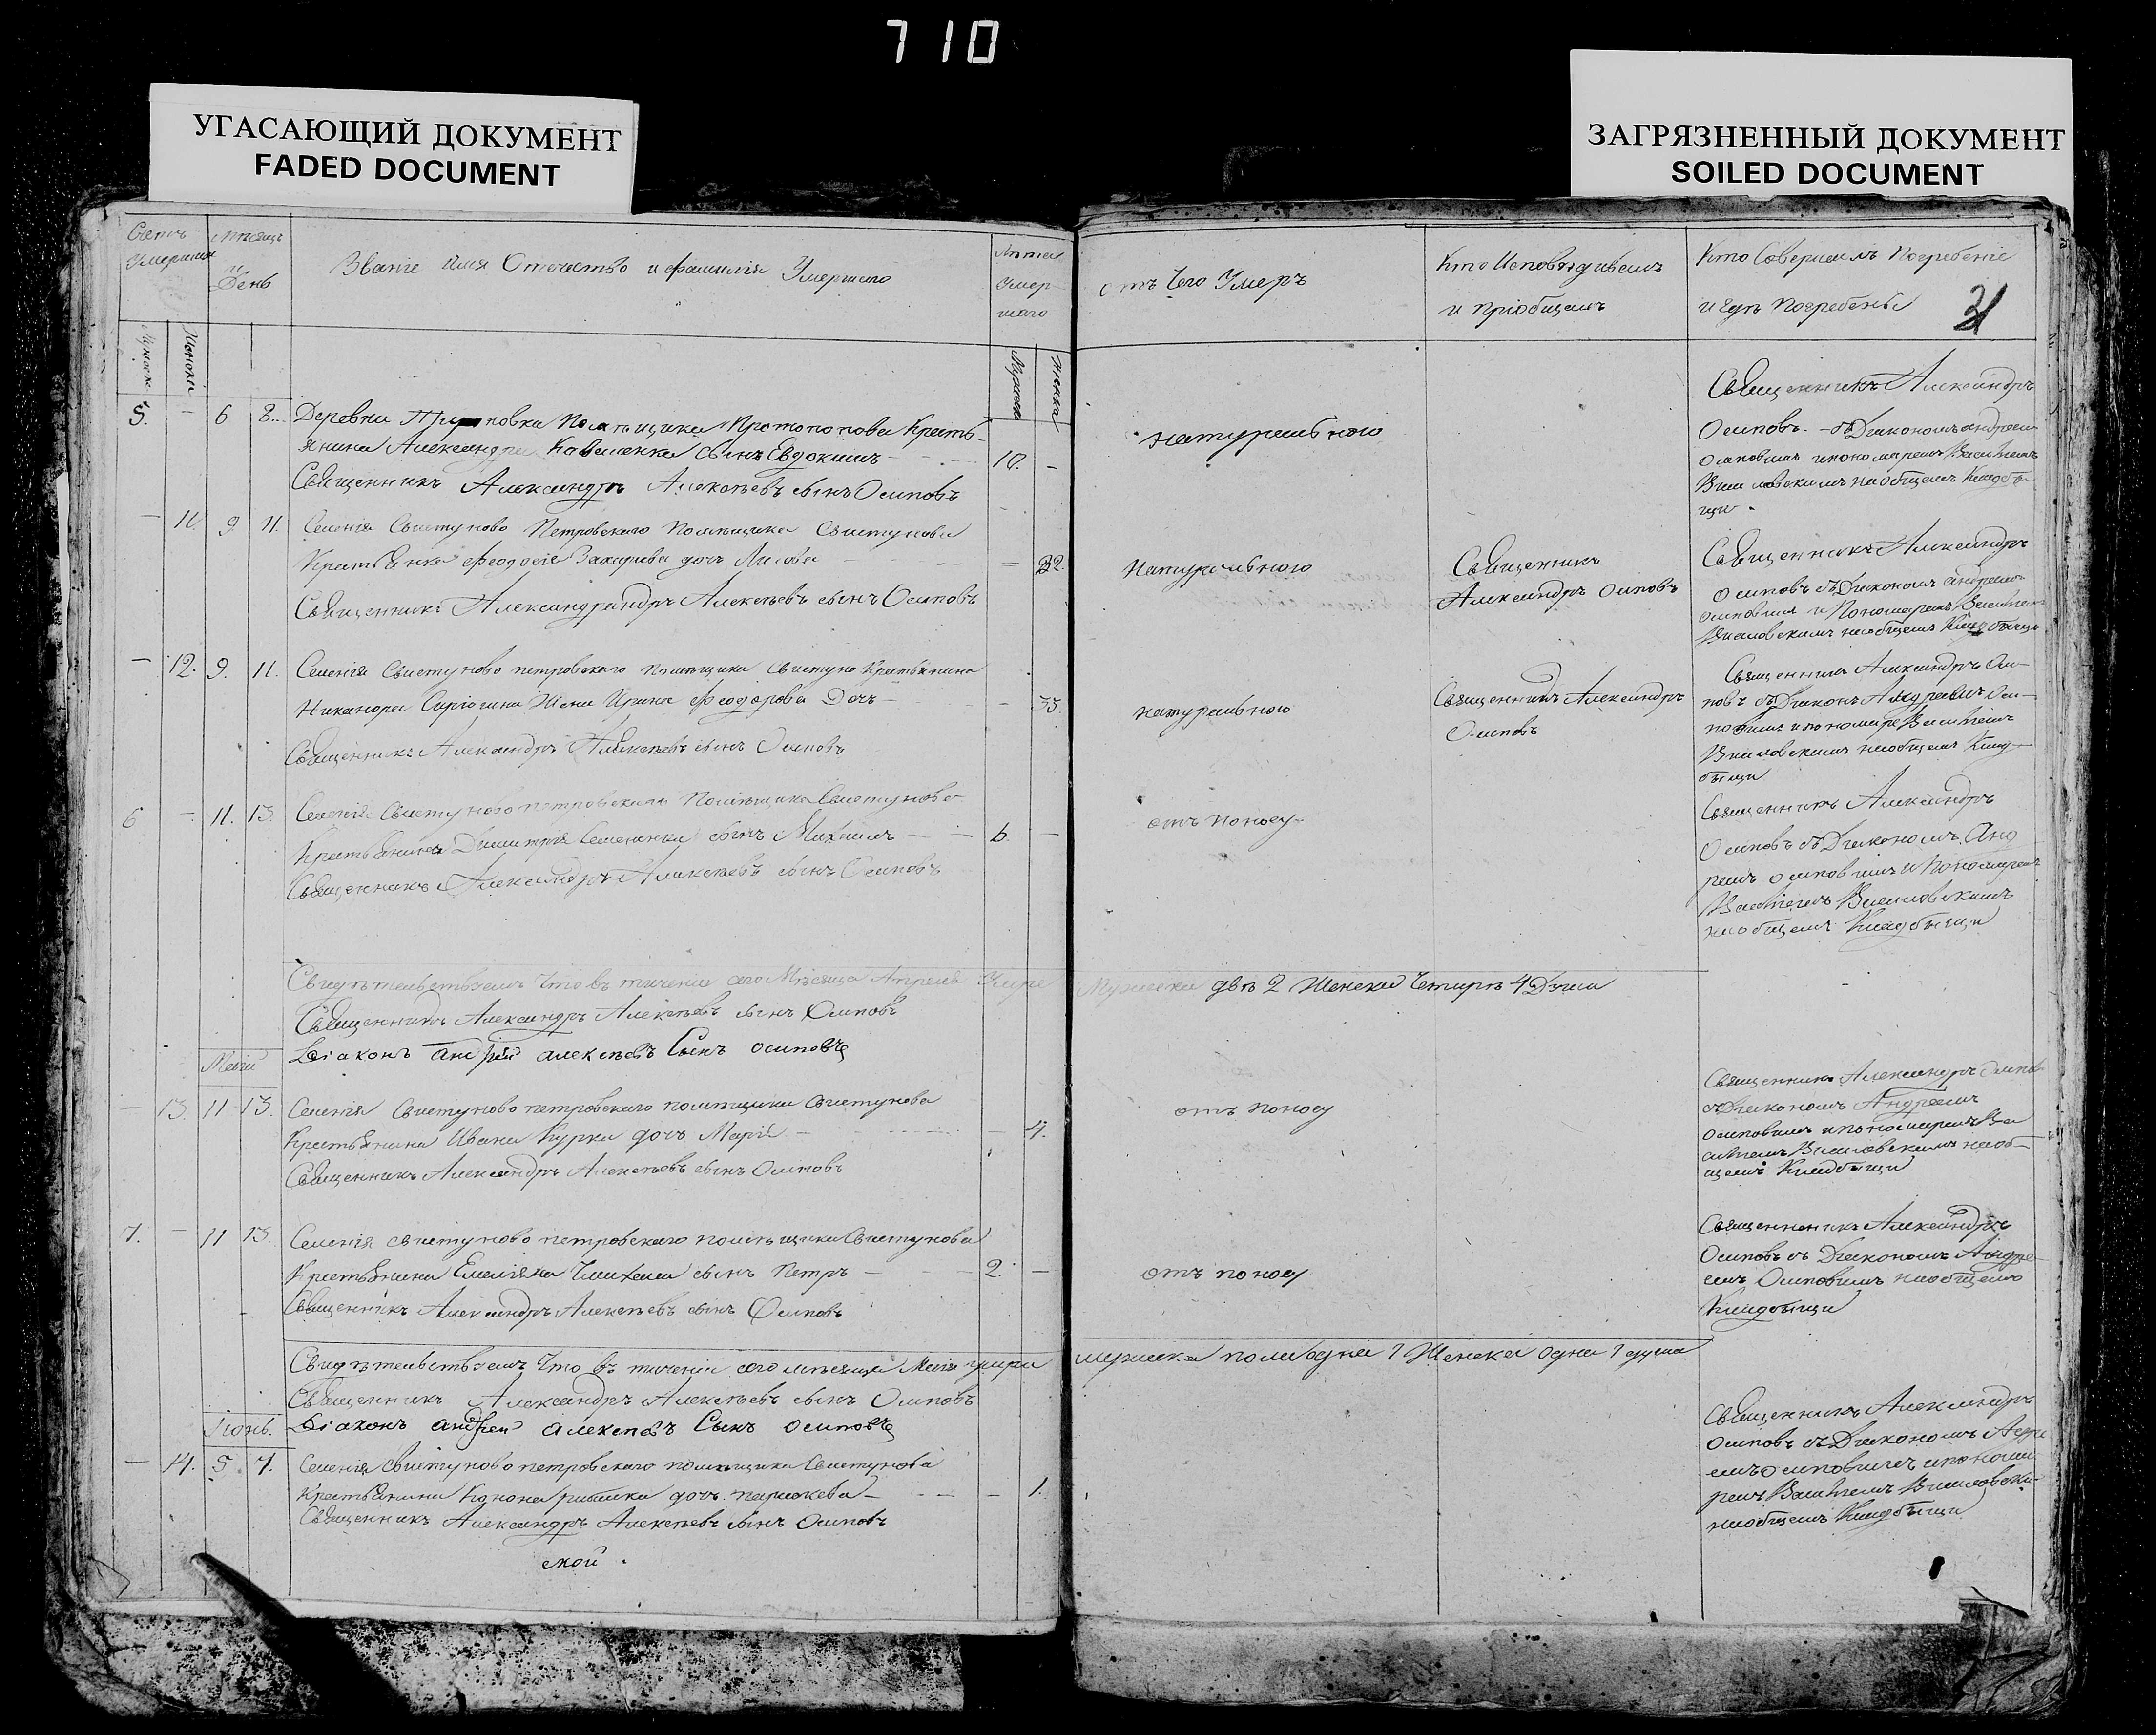 710
УГАСАЮЩИЙ ДОКУМЕНТ
FADED DOCUMENT
ЗАГРЯЗНЕННЫЙ ДОКУМЕНТ
SOILED DOCUMENT
Счетъ Умершихъ
Мѣсяцъ и День
Званіе имя Отечество и фамилія Умершаго
Лѣта Умершаго
отъ Чего Умеръ
Кто Исповѣдывалъ
и пріобщалъ
Кто Совершалъ Погребеніе
и гдѣ Погребены
5. - 6 8 Деревни Помѣщика Протопопова Кресть-
янина Александра Коваленка сынъ Евдокимъ 10. -
Священникъ Александръ Алексѣевъ сынъ Осиповъ
натурального
Священникъ Александръ
Осиповъ съ Діакономъ Андреем
Осиповымъ и пономаремъ Василіемъ
на общемъ Кладбѣ-
щи.
- 11 9 11. Селенія Свистуново Петровскаго Помѣщика Свистунова
Крестьянка Феодосіе Захарива дочь - 32.
Священникъ Александрандръ Алексѣевъ сынъ Осиповъ
Натурального
Священникъ
Александръ Осиповъ
Священникъ Александръ
Осиповъ съ Діакономъ Андреемъ
Осиповым и Пономаремъ Василіем
на общемъ Кладбыщи
- 12. 9. 11. Селенія Свистуново петровскаго помѣщика Свистуно Крестьянина
Никанора Сиргогина Жена Ирина Феодорова Дочь - 35.
Священникъ Александръ Алексѣевъ сынъ Осиповъ
натурального
Священникъ Александръ
Осиповъ
Священникъ Александръ Оси-
повъ съ Діаконъ Андреемъ Оси-
повым и пономаре Василіемъ
на общемъ Клад-
быщи
6 - 11. 13. Селенія Свистуново петровскаго Помѣщика Свистунова
Крестьянина Димитрія Семененка сынъ Михаилъ 6. -
Священникъ Александръ Алексѣевъ сынъ Осиповъ
отъ поносу
Священникъ Александръ
Осиповъ съ Діакономъ Анд
реемъ Осиповымъ и Пономарем
Василіемъ
на общемъ Кладбыщи
Свидѣтельствуемъ Что въ тичении сего Мѣсяца Апреля Умре Мужеска двѣ 2 Женска Четирѣ 4 Души
Священникъ Александръ Алексѣевъ сынъ Осиповъ
Діаконъ андрей алексѣевъ Сынъ осиповъ
Маій
- 13. 11 13. Селенія Свистуново петровскаго помѣщика Свистунова
Крестьянина Ивана Курка дочь Марія - 4.
Священникъ Александръ Алексѣевъ сынъ Осиповъ
отъ поносу
Священникъ Александръ Осипов
съ Діакономъ Андреемъ
Осиповымъ и пономаремъ Ва
силіемъ на об-
щемъ Кладбыщи
7. - 11 13. Селенія Свистуново петровскаго помѣщика Свистунова
Крестьянина Емеліяна сынъ Петръ 2. -
Священникъ Александръ Алексѣевъ сынъ Осиповъ
отъ поносу
Священникъ Александръ
Осиповъ съ Діакономъ Андре-
емъ Осиповымъ на общемъ
Кладбыщи
Свидѣтельствуемъ Что въ тичении сего мѣсяца Маія умре мужеска пола одна 1 Женска одна 1 душа
Священникъ Александръ Алексѣевъ сынъ Осиповъ
Діаконъ андрей алексѣевъ Сынъ осиповъ
Іюнь.
- 14. 5. 7. Селенія Свистуново петровскаго помѣщика Свистунова
Крестьянина Конона дочь параскева - 1.
Священникъ Александръ Алексѣевъ сынъ Осиповъ
ской.
Священникъ Александръ
Осиповъ съ Діакономъ Андре
емъ Осиповымъ и понома
ремъ Василіемъ
на общемъ Кладбыщи